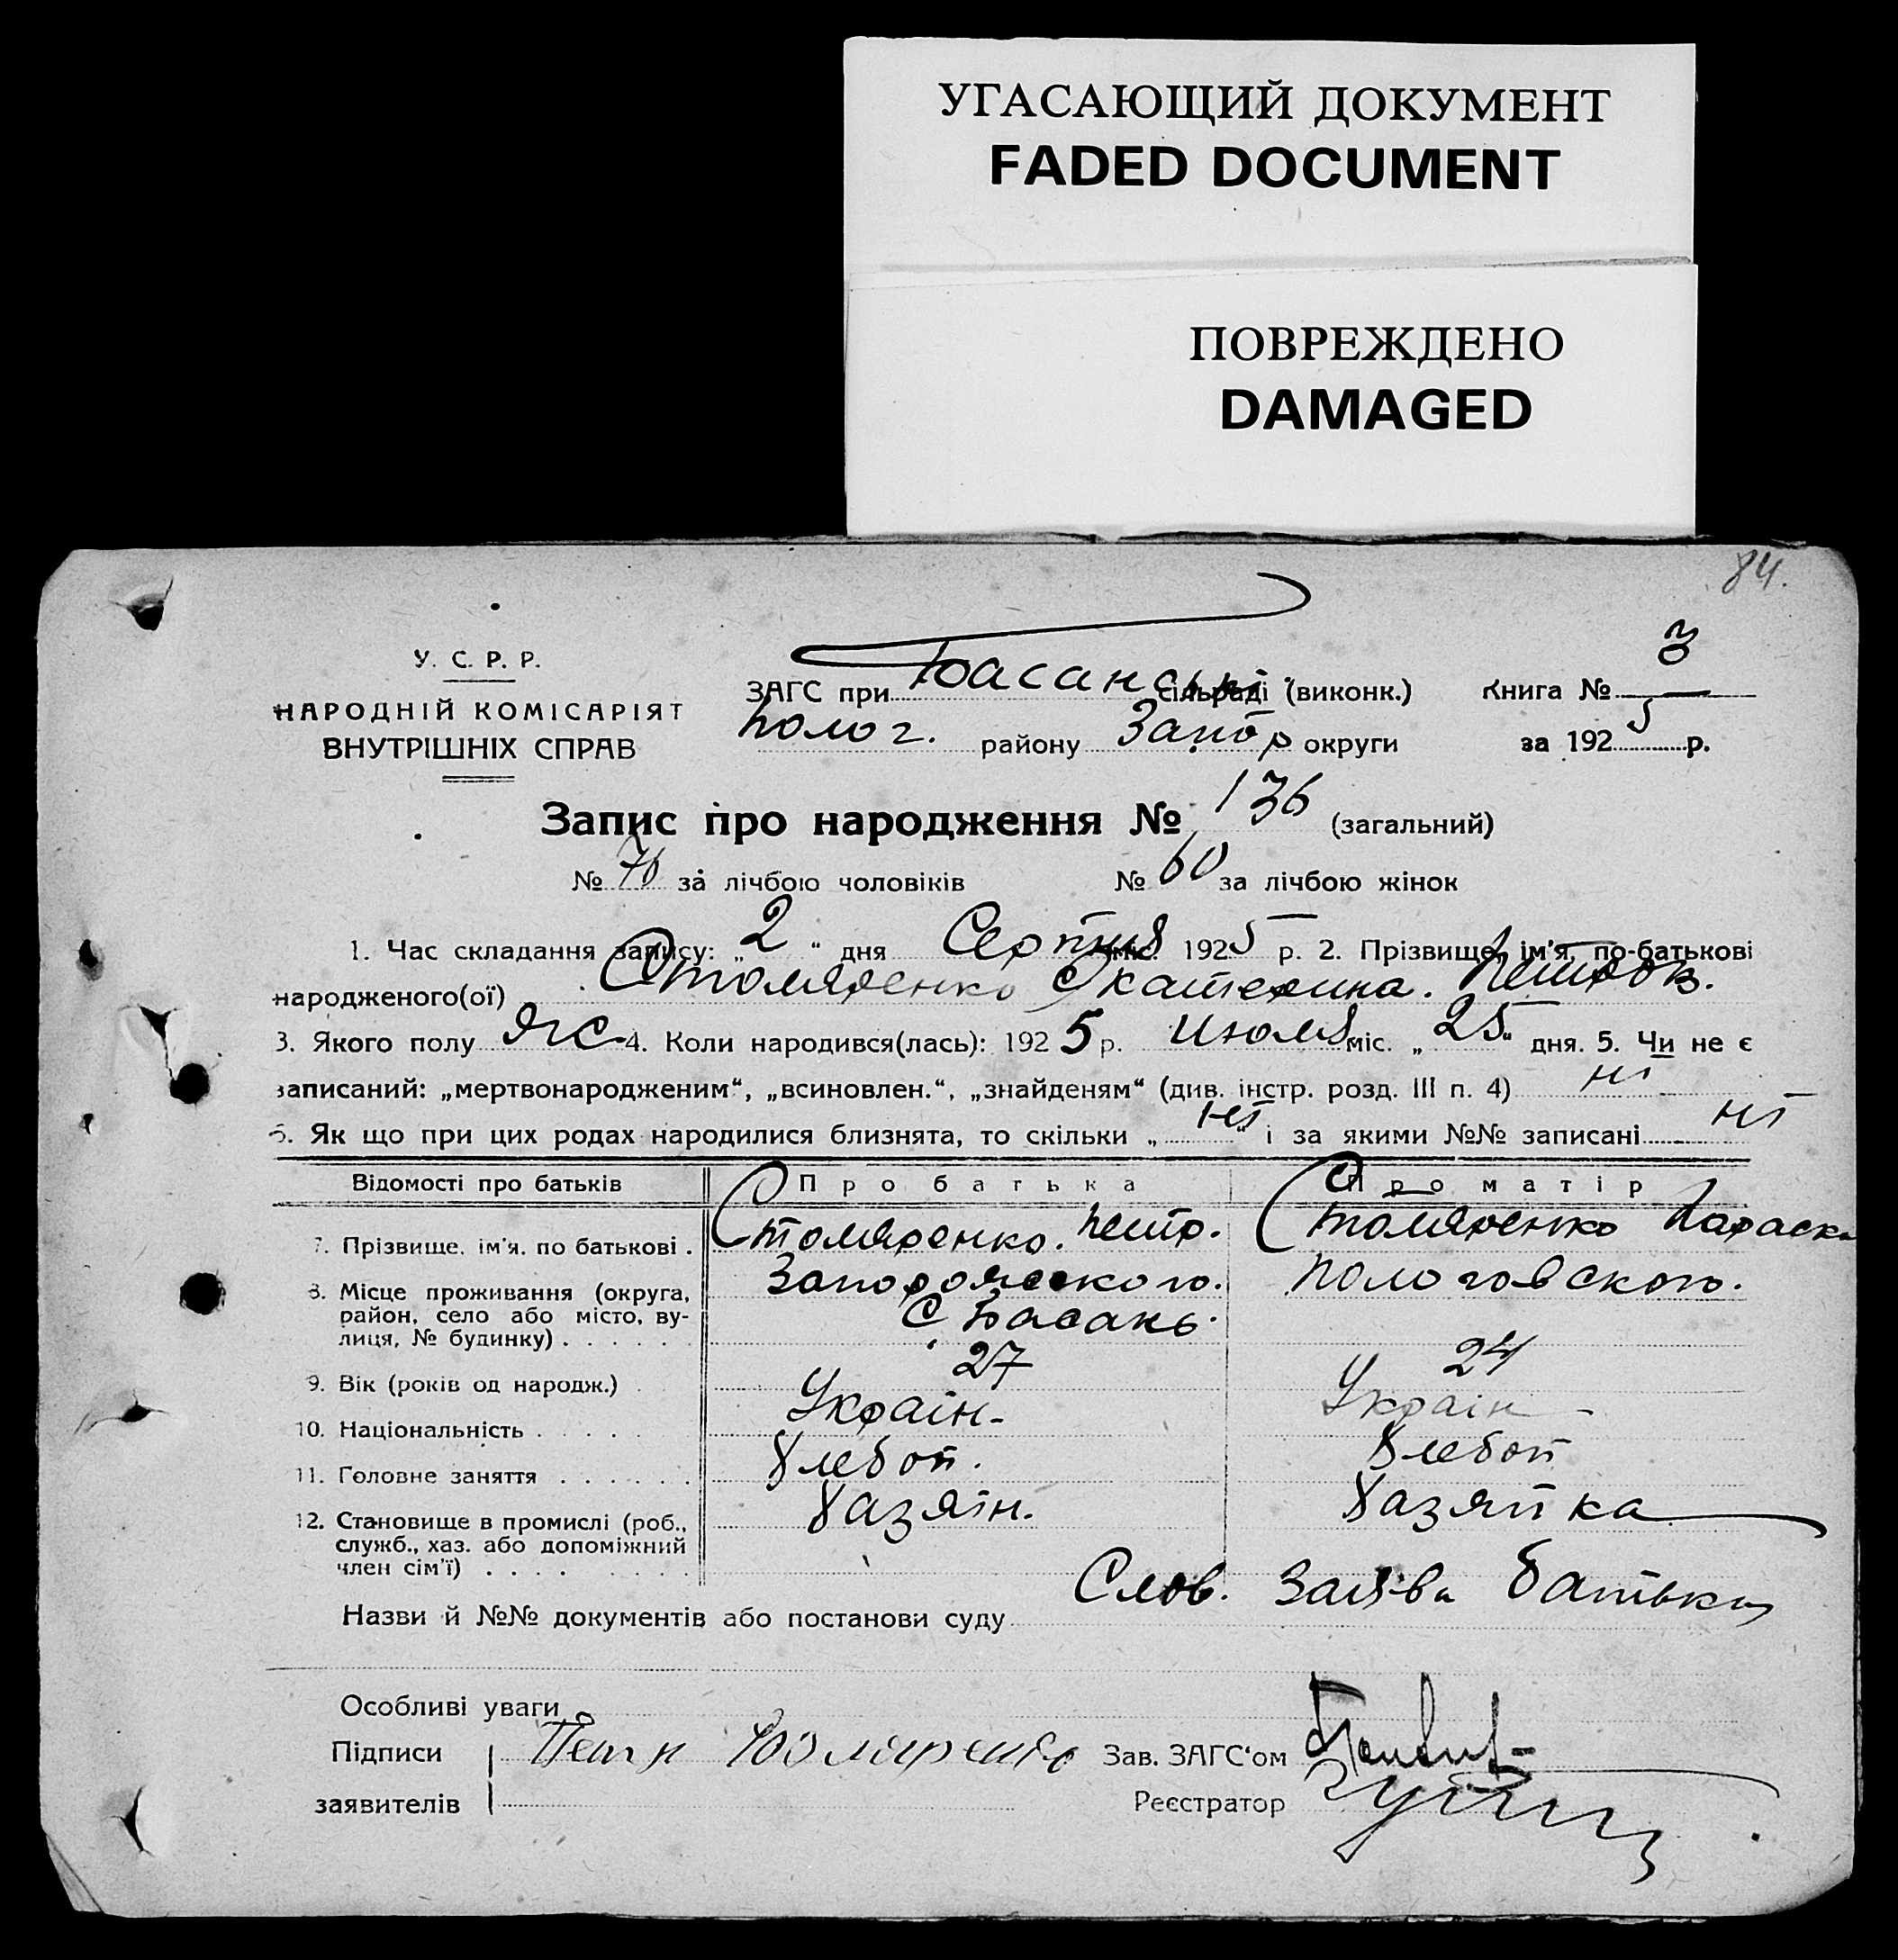 УГАСАЮЩИЙ ДОКУМЕНТ
FADED DOCUMENT
ПОВРЕЖДЕНО
DAMAGED
84.
У. С. Р. Р.
НАРОДНІЙ КОМІСАРІЯТ
ВНУТРІШНІХ СПРАВ
ЗАГС при Басанські сільраді (виконк.) Книга № 3
Полог. району Запор округи за 1925 р.
Запис про народження № 136 (загальний)
№ 76 за лічбою чоловіків № 60 за лічбою жінок
1. Час складання запису: „ 2 “ дня Серпня міс. 1925 р. 2. Прізвище, ім'я, по-батькові
народженого(ої) Столяренко Екатерина. Петров.
3. Якого полу жс 4. Коли народився(лась): 1925 р. Июля міс. „ 25 “ дня. 5. Чи не є
записаний: „мертвонародженим“, „всиновлен.“, „знайденям“ (див. інстр. розд. III п. 4) ні
6. Як що при цих родах народилися близнята, то скільки „ ні “ і за якими №№ записані ні
Відомості про батьків Про батька Про матір
7. Прізвище, ім'я, по батькові . Столяренко. Петр. Столяренко Параска
8. Місце проживання (округа, Запорожского. Пологовского.
район, село або місто, ву- С. Басань.
лиця, № будинку) . . . . . .
9. Вік (років од народж.) . 27 24
10. Національність . . . . . Українn- Україн-
11. Головне заняття . . . . . . Хлебоп. Хлебоп
12. Становище в промислі (роб., Хазяін. Хазяйка
служб., хаз. або допоміжний
член сім'ї) . . . . . . . .
Назви й №№ документів або постанови суду Слов. Заява батька
Особливі уваги
Підписи Петр Столяренко Зав. ЗАГС'ом
заявителів Реєстратор